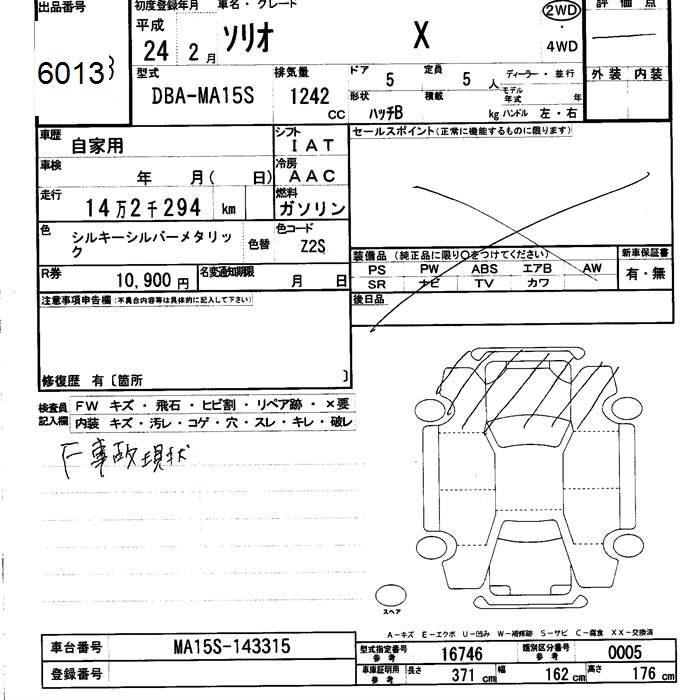 出品番号 初度登録年月 車名・グレード 2WD 評価点
平成 24 2月 ソリオ X 4WD
6013 外装 内装
型式 排気量 ドア 5 定員 5人 ディーラー・並行
DBA-MA15S 1242cc 形状 ハッチB 積載 kg モデル年式 年 ハンドル 左・右
車歴 自家用 シフト IAT セールスポイント(正常に機能するものに限ります)
車検 年 月( 日) 冷房 AAC
走行 14万2千294 km 燃料 ガソリン
色 シルキーシルバーメタリック 色替 色コード Z2S
装備品(純正品に限り○をつけてください) 新車保証書
PS PW ABS エアB AW 有・無
SR ナビ TV カワ
R券 10,900円 名変通知期限 月 日 後日品
注意事項申告欄(不具合内容等は具体的に記入して下さい)
修復歴 有〔箇所 〕
検査員記入欄 FW キズ・飛石・ヒビ割・リペア跡・×要
内装 キズ・汚レ・コゲ・穴・スレ・キレ・破レ
F事故現状
スペア
A-キズ E-エクボ U-凹み W-補修跡 S-サビ C-腐食 XX-交換済
車台番号 MA15S-143315 型式指定番号 参考 16746 類別区分番号 参考 0005
登録番号 車庫証明用 参考 長さ 371cm 幅 162cm 高さ 176cm